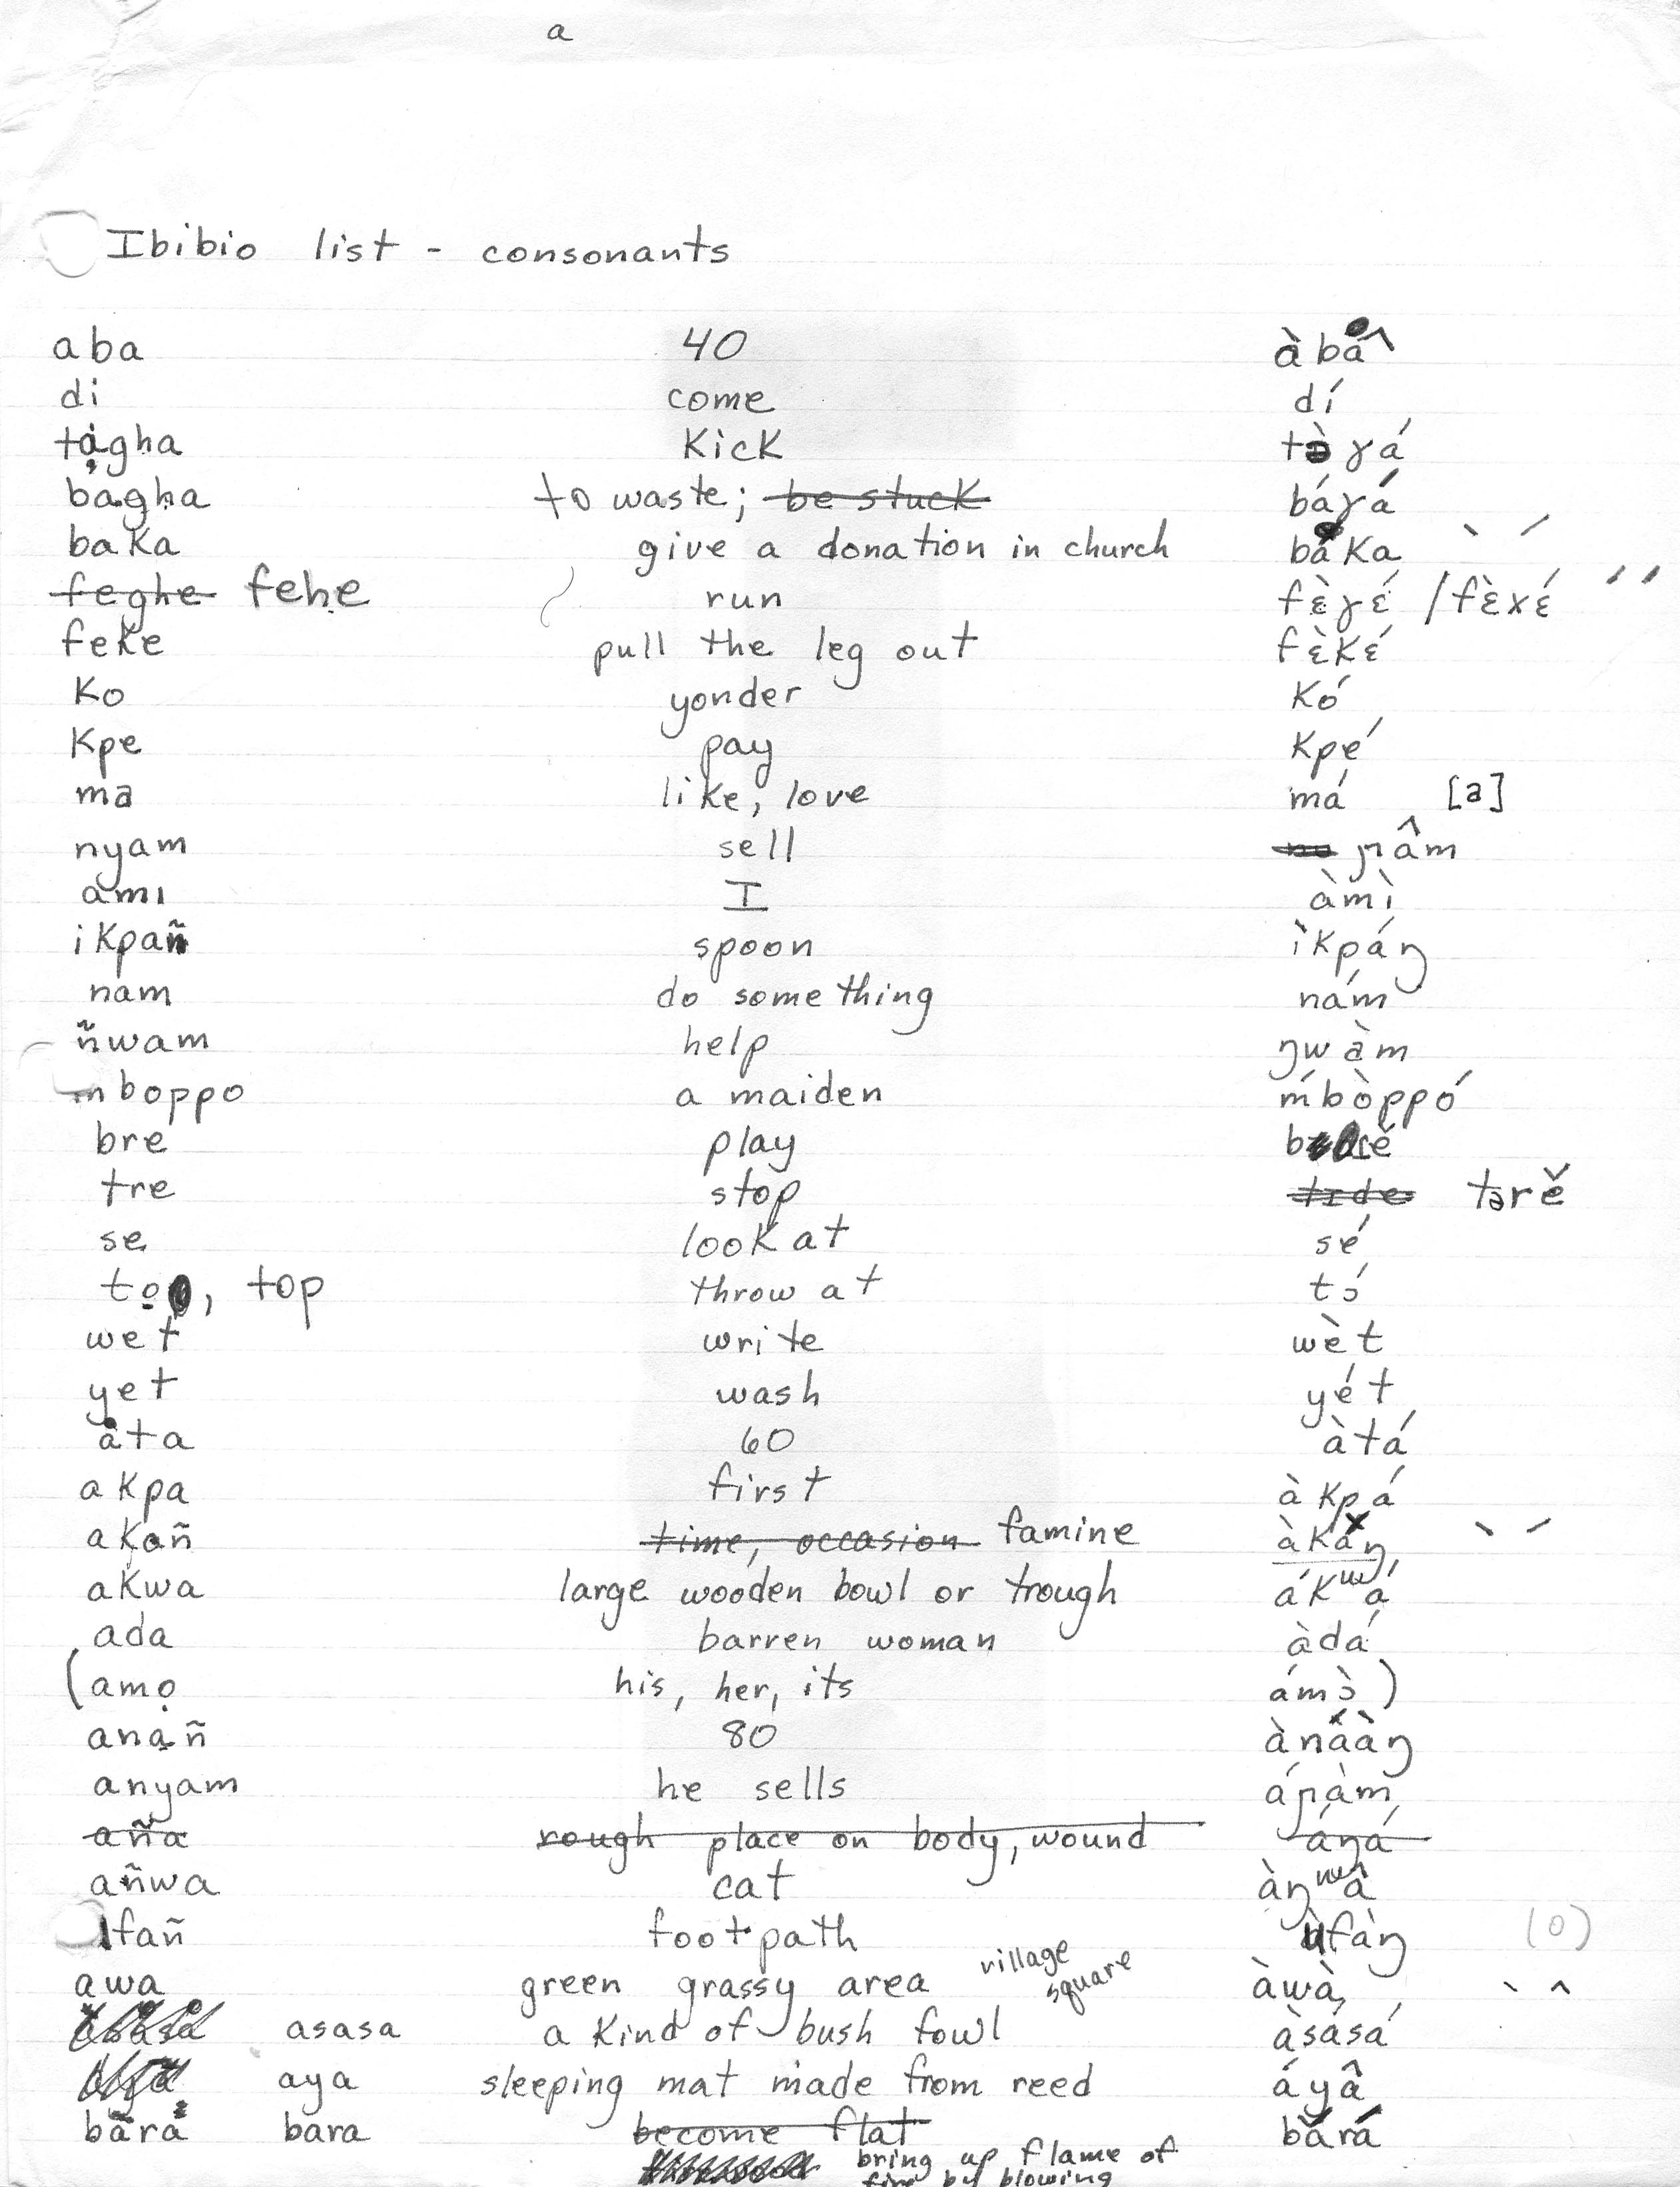 a
Ibibio list - consonants
aba 40 àbâ
di come dí
tạgha kick tə̀ɣá
bagha to waste; be stuck báɣá
baka give a donation in church baka ` ´
feghe fehe run fɛ̀ɣɛ́ / fɛ̀xɛ́ ´ ´
feke pull the leg out fɛ̀kɛ́
ko yonder kó
kpe pay kpé
ma like, love má [a]
nyam sell ɲâm
ami I àmì
ikpañ spoon ìkpáŋ
nam do something nám
ñwam help ŋwàm
mboppo a maiden ḿbòppó
bre play
tre stop tərě
se look at sé
tọ, top throw at tɔ́
wet write wèt
yet wash yét
ata 60 àtá
akpa first àkpá
akañ time, occasion famine àkáŋ ` ´
akwa large wooden bowl or trough ákʷá
ada barren woman àdá
(amọ his, her, its ámɔ̀)
anạñ 80 ànáàŋ
anyam he sells áɲàm
aña rough place on body, wound áŋá
añwa cat àŋʷâ
ifañ footpath ùfàŋ (o)
awa green grassy area village square àwà ` ^
asasa a kind of bush fowl àsásá
aya sleeping mat made from reed áyâ
bara bara become flat bárá
bring up flame of
fire by blowing